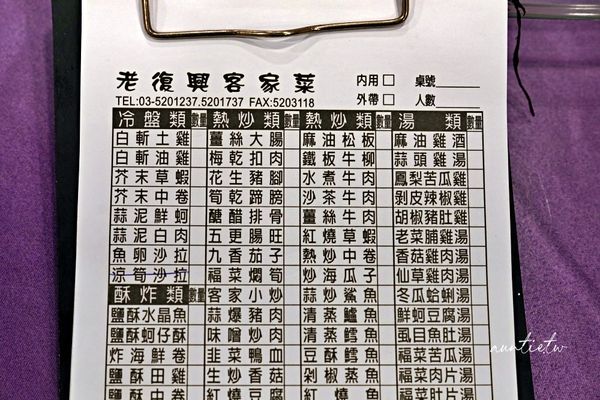 老復興客家菜 內用□ 桌號
TEL:03-5201237.5201737 FAX:5203118 外帶□ 人數
冷盤類 數量 熱炒類 數量 熱炒類 數量 湯類 數量
白斬土雞 薑絲大腸 麻油松板 麻油雞酒
白斬油雞 梅乾扣肉 鐵板牛柳 蒜頭雞湯
芥末草蝦 花生豬腳 水煮牛肉 鳳梨苦瓜雞
芥末中卷 筍乾蹄膀 沙茶牛肉 剝皮辣椒雞
蒜泥鮮蚵 醋醋排骨 薑絲牛肉 胡椒豬肚雞
蒜泥白肉 五更腸旺 紅燒草蝦 老菜脯雞湯
魚卵沙拉 九香茄子 熱炒中卷 香菇雞肉湯
涼筍沙拉 福菜燜筍 炒海瓜子 仙草雞肉湯
酥炸類 數量 客家小炒 蒜炒鯊魚 冬瓜蛤蜊湯
鹽酥水晶魚 蒜爆豬肉 清蒸鱸魚 鮮蚵豆腐湯
鹽酥蚵仔酥 味噌炒肉 清蒸鱈魚 虱目魚肚湯
炸海鮮卷 韭菜鴨血 豆酥鱈魚 福菜苦瓜湯
鹽酥田雞 生炒香菇 剁椒蒸魚 福菜肉片湯
鹽酥中卷 紅燒豆腐 紅燒魚 榨菜肉片湯
auntietw